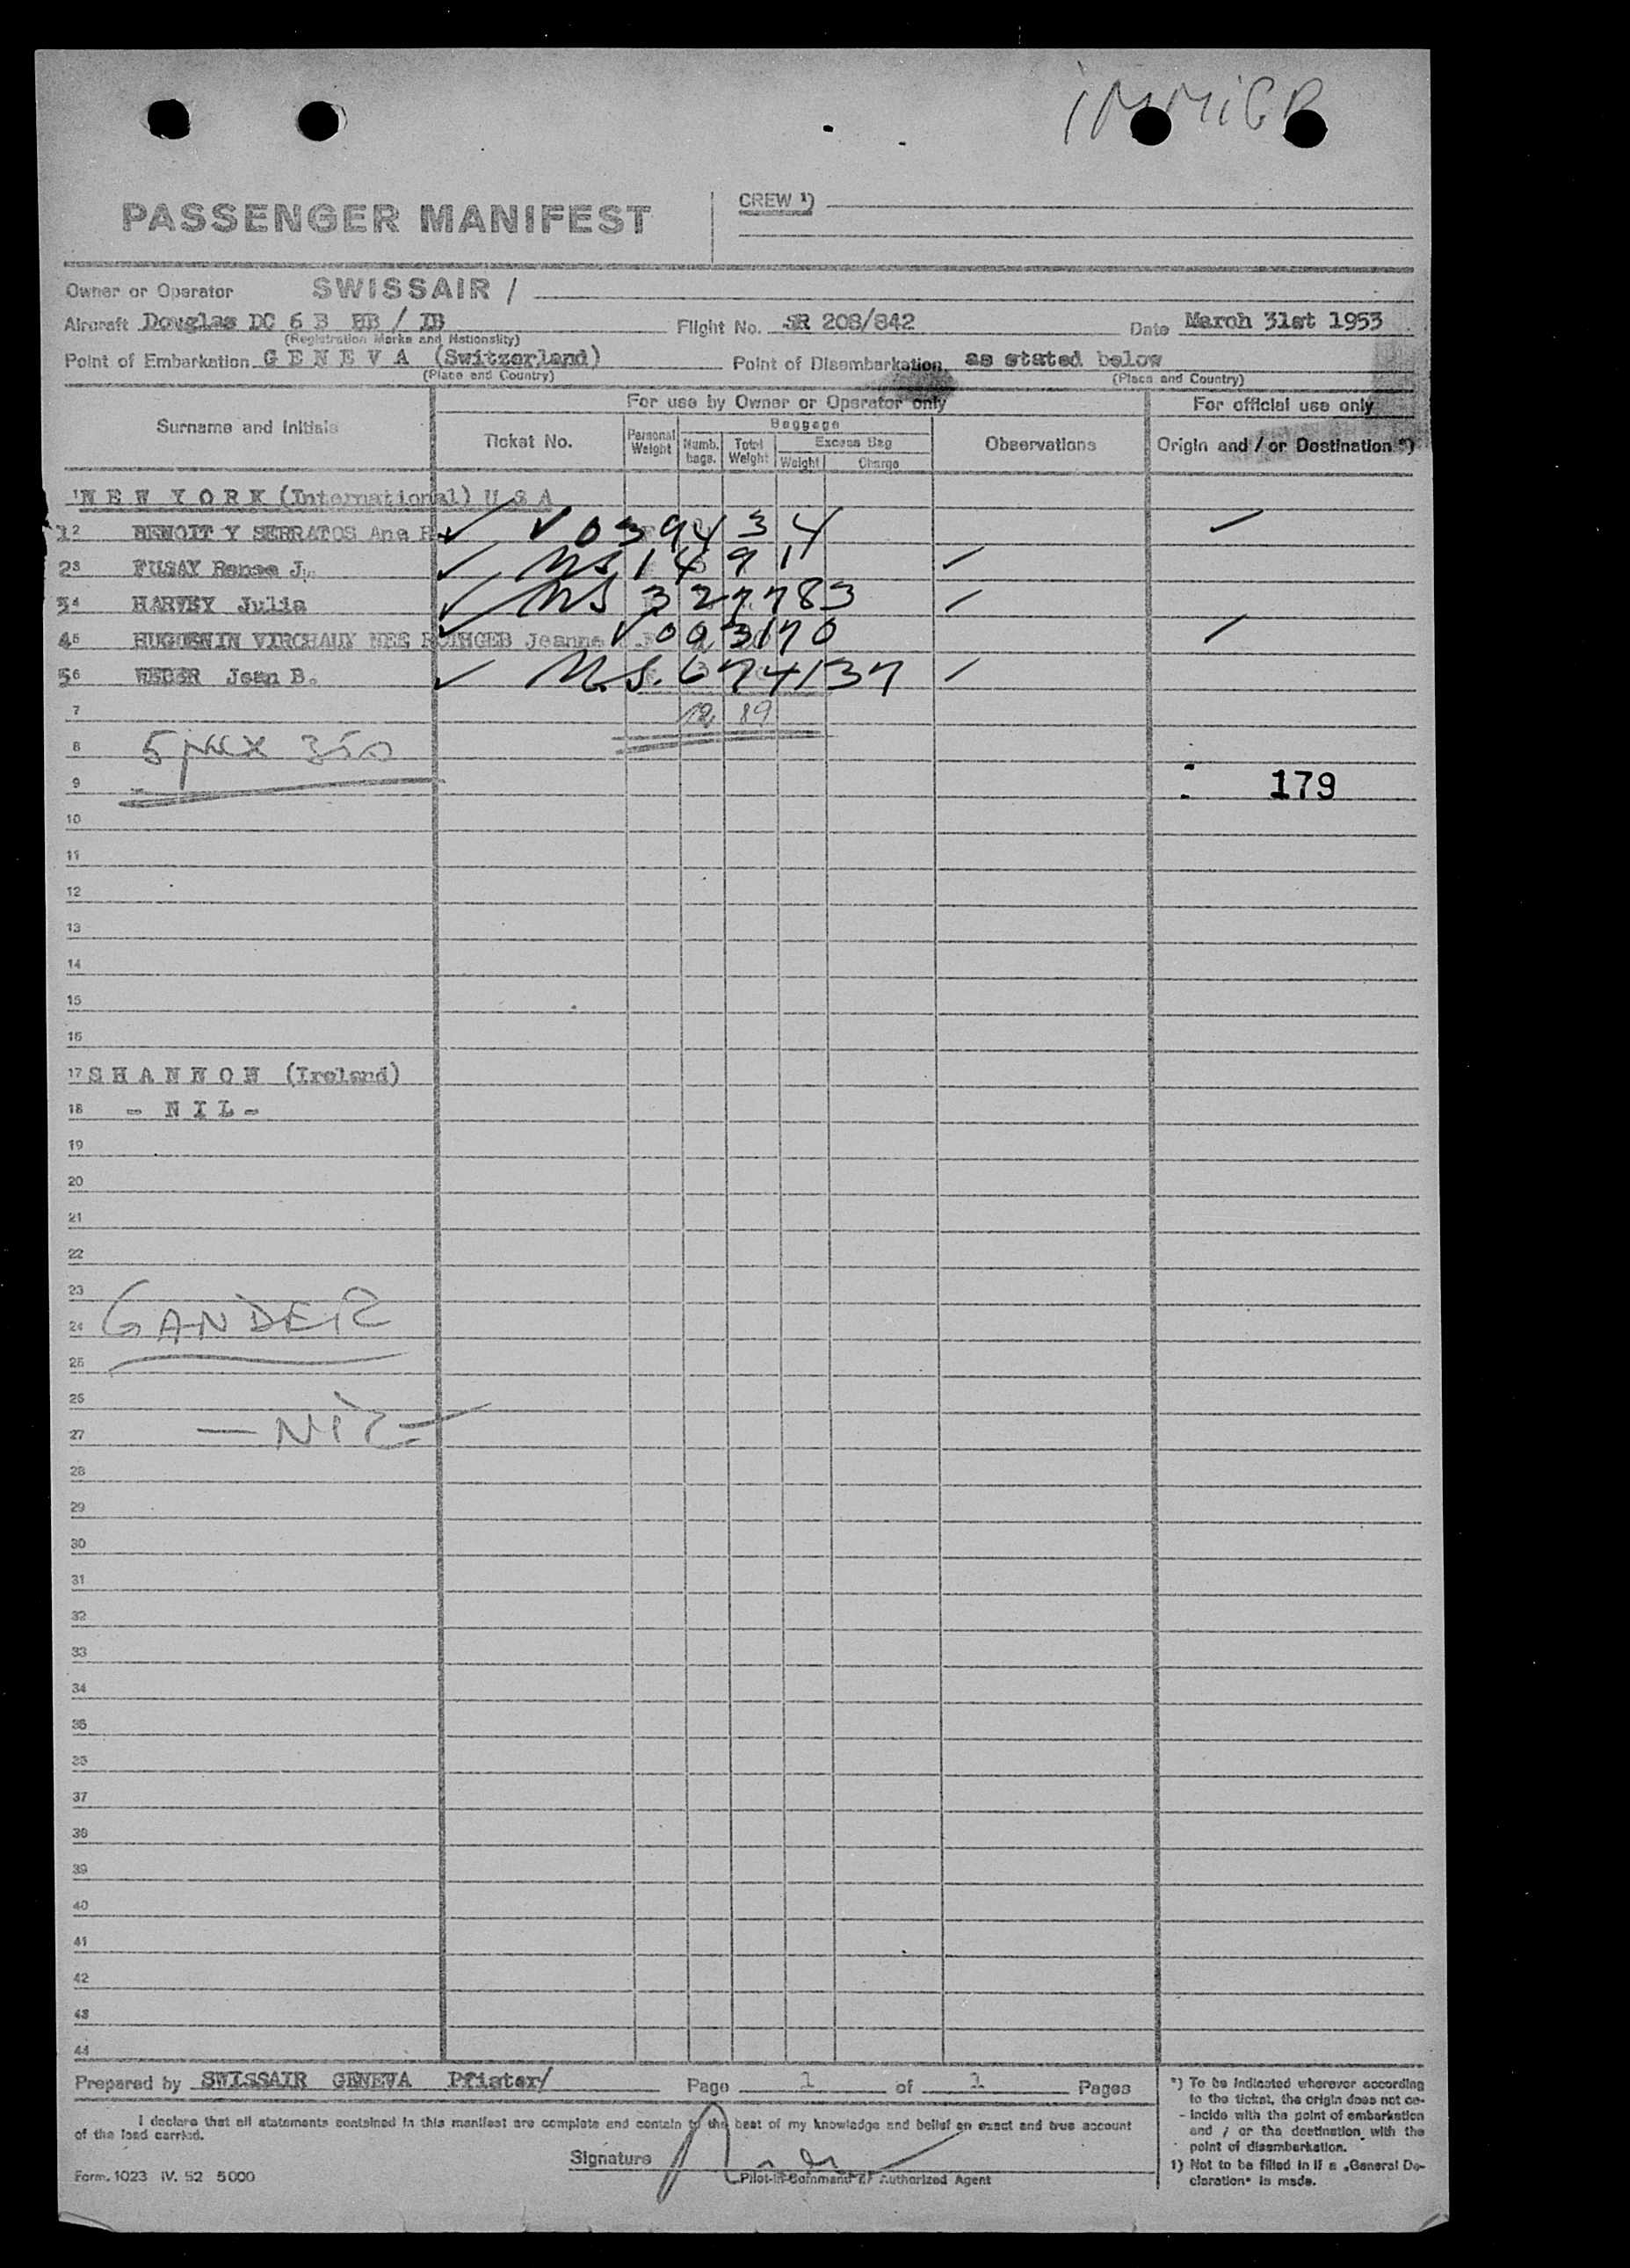 iMMiGR
PASSENGER MANIFEST
CREW ¹)
Owner or Operator SWISSAIR /
Aircraft Douglas DC 6 B HB / IB Flight No. SR 208/842 Date March 31st 1953
(Registration Marks and Nationality)
Point of Embarkation G E N E V A (Switzerland) Point of Disembarkation as stated below
(Place and Country) (Place and Country)
For use by Owner or Operator only For official use only
Surname and Initials Ticket No. Personal Weight Baggage Numb. bags. Total Weight Excess Bag Weight Charge Observations Origin and / or Destination *)
1 N E W Y O R K (International) U S A
1 2 BENOIT Y SERRATOS Ana ✓ V 039434
2 3 FUSAY Renee J. ✓ US 1491
3 4 HARVEY Julia ✓ US 327783
4 5 HUGUENIN VIRCHAUX NEE ROTHGEB Jeanne ✓ V 093170
5 6 WEBER Jean B. ✓ U.S. 674137
7 12 89
8 5 pax 350
9 179
10
11
12
13
14
15
16
17 S H A N N O N (Ireland)
18 - N I L -
19
20
21
22
23
24 GANDER
25
26
27 — NIL —
28
29
30
31
32
33
34
35
36
37
38
39
40
41
42
43
44
Prepared by SWISSAIR GENEVA Pfister/ Page 1 of 1 Pages
I declare that all statements contained in this manifest are complete and contain to the best of my knowledge and belief an exact and true account
of the load carried.
Signature
Pilot-in-Command or Authorized Agent
Form. 1023 IV. 52 5000
*) To be indicated wherever according
to the ticket, the origin does not co-
incide with the point of embarkation
and / or the destination with the
point of disembarkation.
1) Not to be filled in if a „General De-
claration" is made.